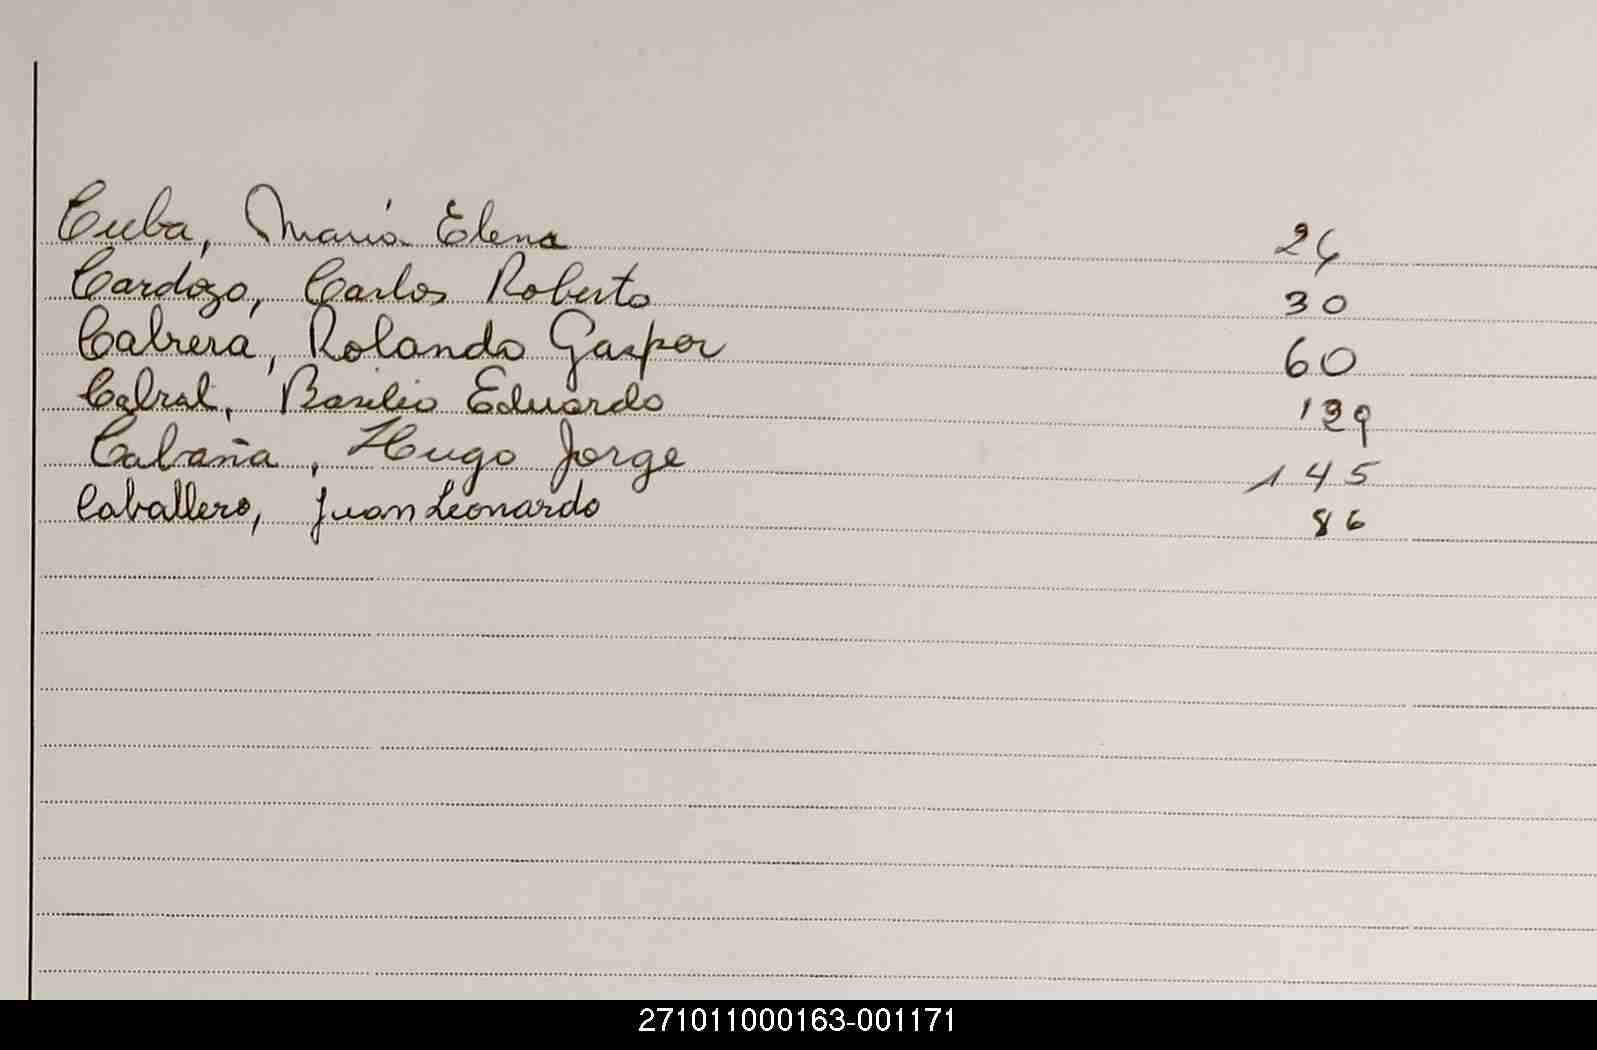 Cuba, María Elena 24
Cardozo, Carlos Roberto 30
Cabrera, Rolando Gaspar 60
Cabral, Basilio Eduardo
Cabaña, Hugo Jorge 145
Caballero, Juan Leonardo 86
271011000163-001171